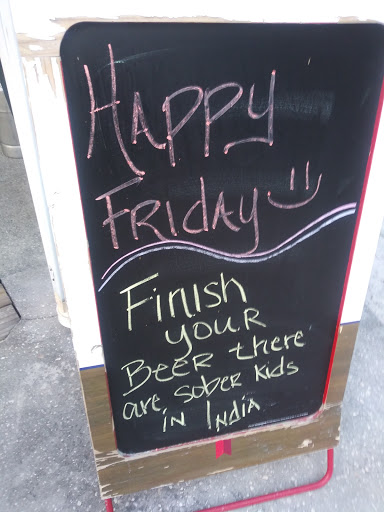 Happy
Friday =)
Finish
your
Beer there
are sober kids
in India